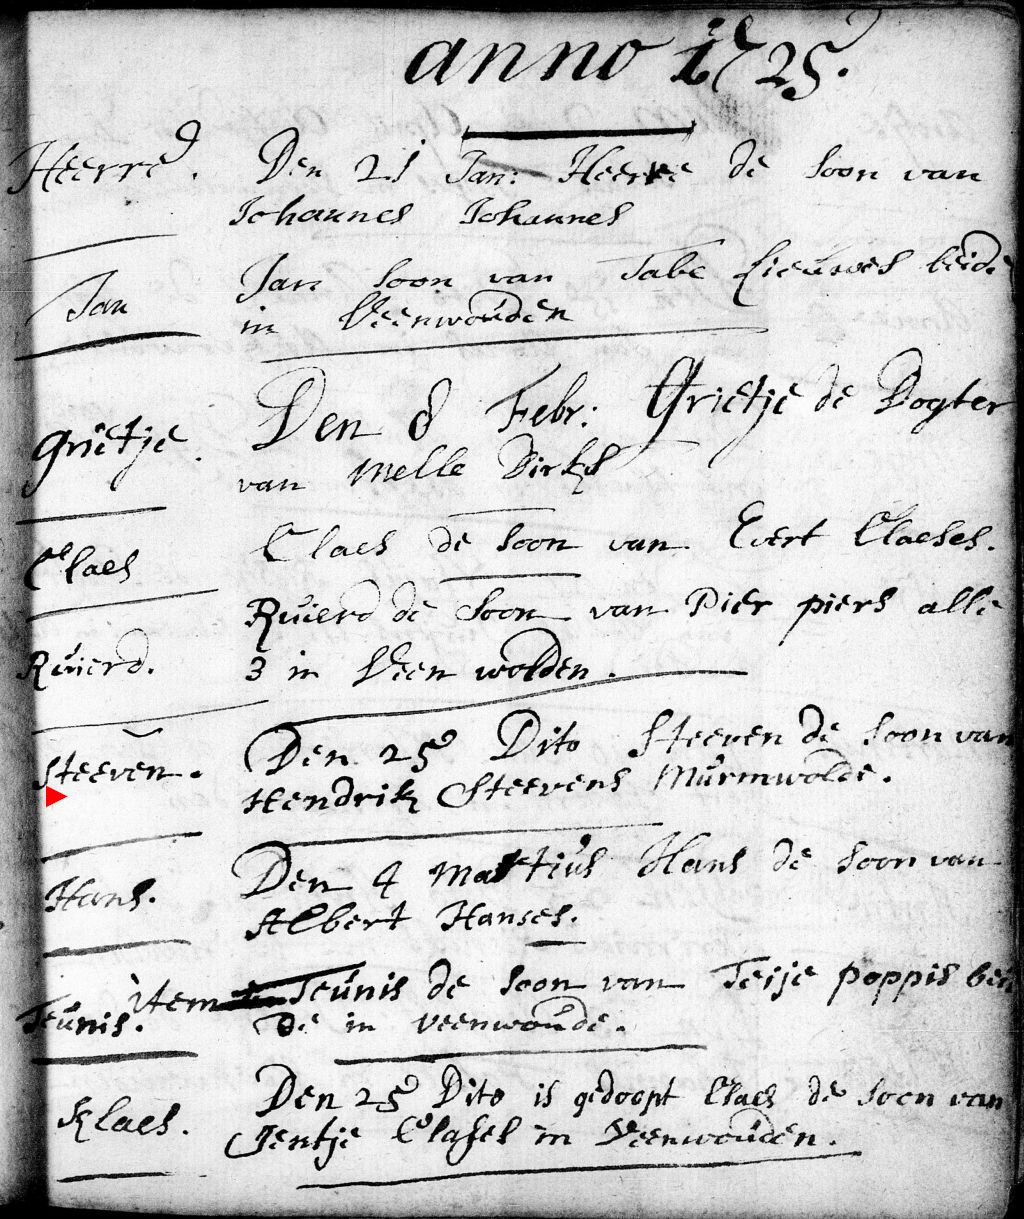 anno 1725.
Heerre. Den 21 Jan: Heerre de soon van
Johannes Johannes
Jan Jan soon van Tabe Lieuwes beide
in Veenwouden
Grietje. Den 8 Febr: Grietje de Dogter
van Melle Dirks
Claes Claes de soon van Evert Claeses.
Ruierd de soon van Pier piers alle
Ruierd. 3 in Veen wolden.
Steeven. Den 25 Dito Steeven de soon van
Hendrik Steevens Murmwolde.
Hans. Den 4 Martius Hans de soon van
Albert Hanses.
item Teunis de soon van Teije poppis bei
Teunis. de in veenwoude.
Klaes. Den 25 Dito is gedoopt Claes de soon van
Jentje Clases in Veenwouden.